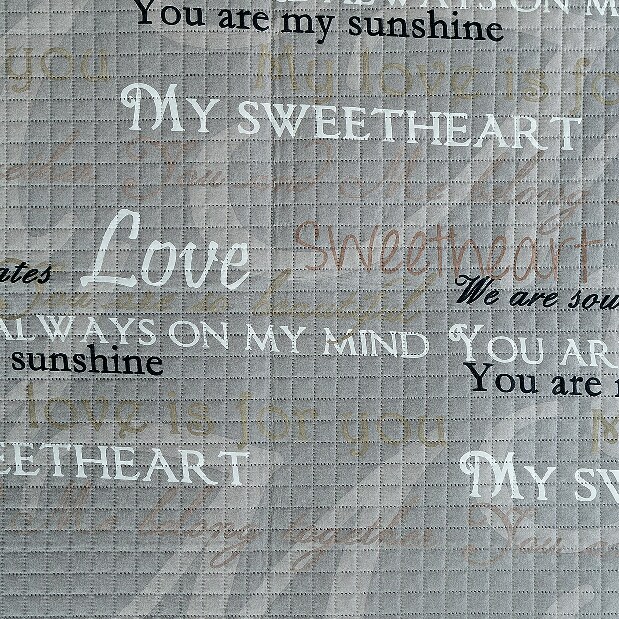 ALWAYS ON M
You are my sunshine
you My love is fo
MY SWEETHEART
You and Me belong
Love Sweetheart
ates We are sou
You are beautiful
ALWAYS ON MY MIND YOU AR
sunshine You are
love is for you
EETHEART MY SW
Me belong together You